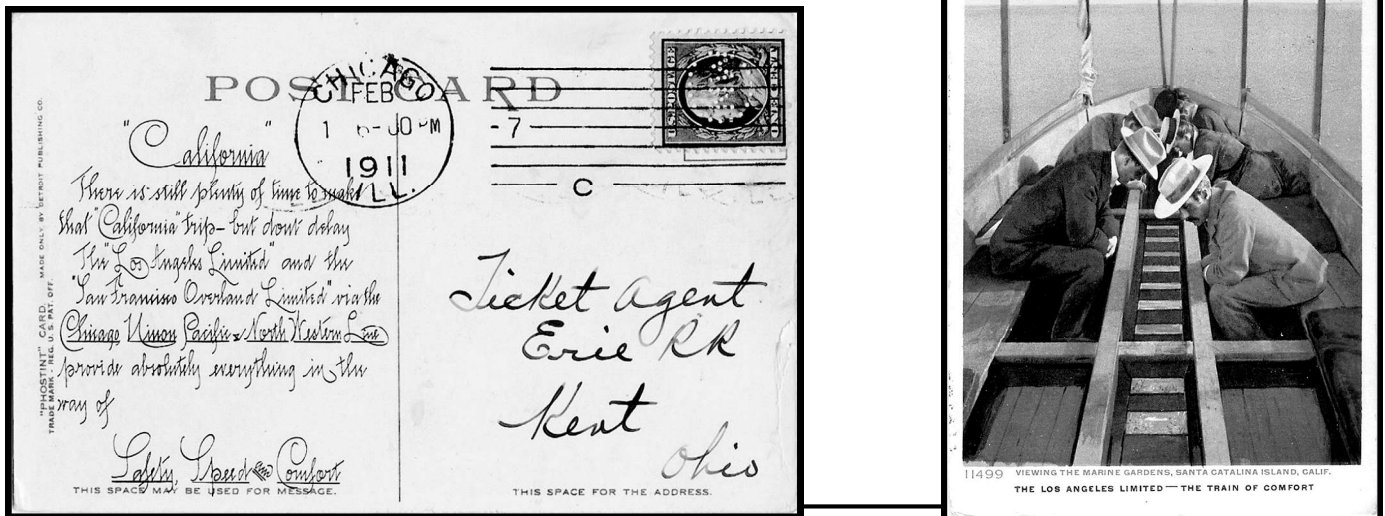 POST CARD
CHICAGO
FEB
1
1911
ILL.
7
C
U.S. POSTAGE
"PHOSTINT" CARD. MADE ONLY BY DETROIT PUBLISHING CO.
TRADE MARK - REG. U.S. PAT. OFF.
"California"
There is still plenty of time to make
that "California" trip – but dont delay
The "Los Angeles Limited" and the
"San Francisco Overland Limited" via the
Chicago Union Pacific & North Western Line
provide absolutely everything in the
way of
Safety, Speed and Comfort
THIS SPACE MAY BE USED FOR MESSAGE.
Ticket Agent
Erie RR
Kent
Ohio
THIS SPACE FOR THE ADDRESS.
11499 VIEWING THE MARINE GARDENS, SANTA CATALINA ISLAND, CALIF.
THE LOS ANGELES LIMITED — THE TRAIN OF COMFORT